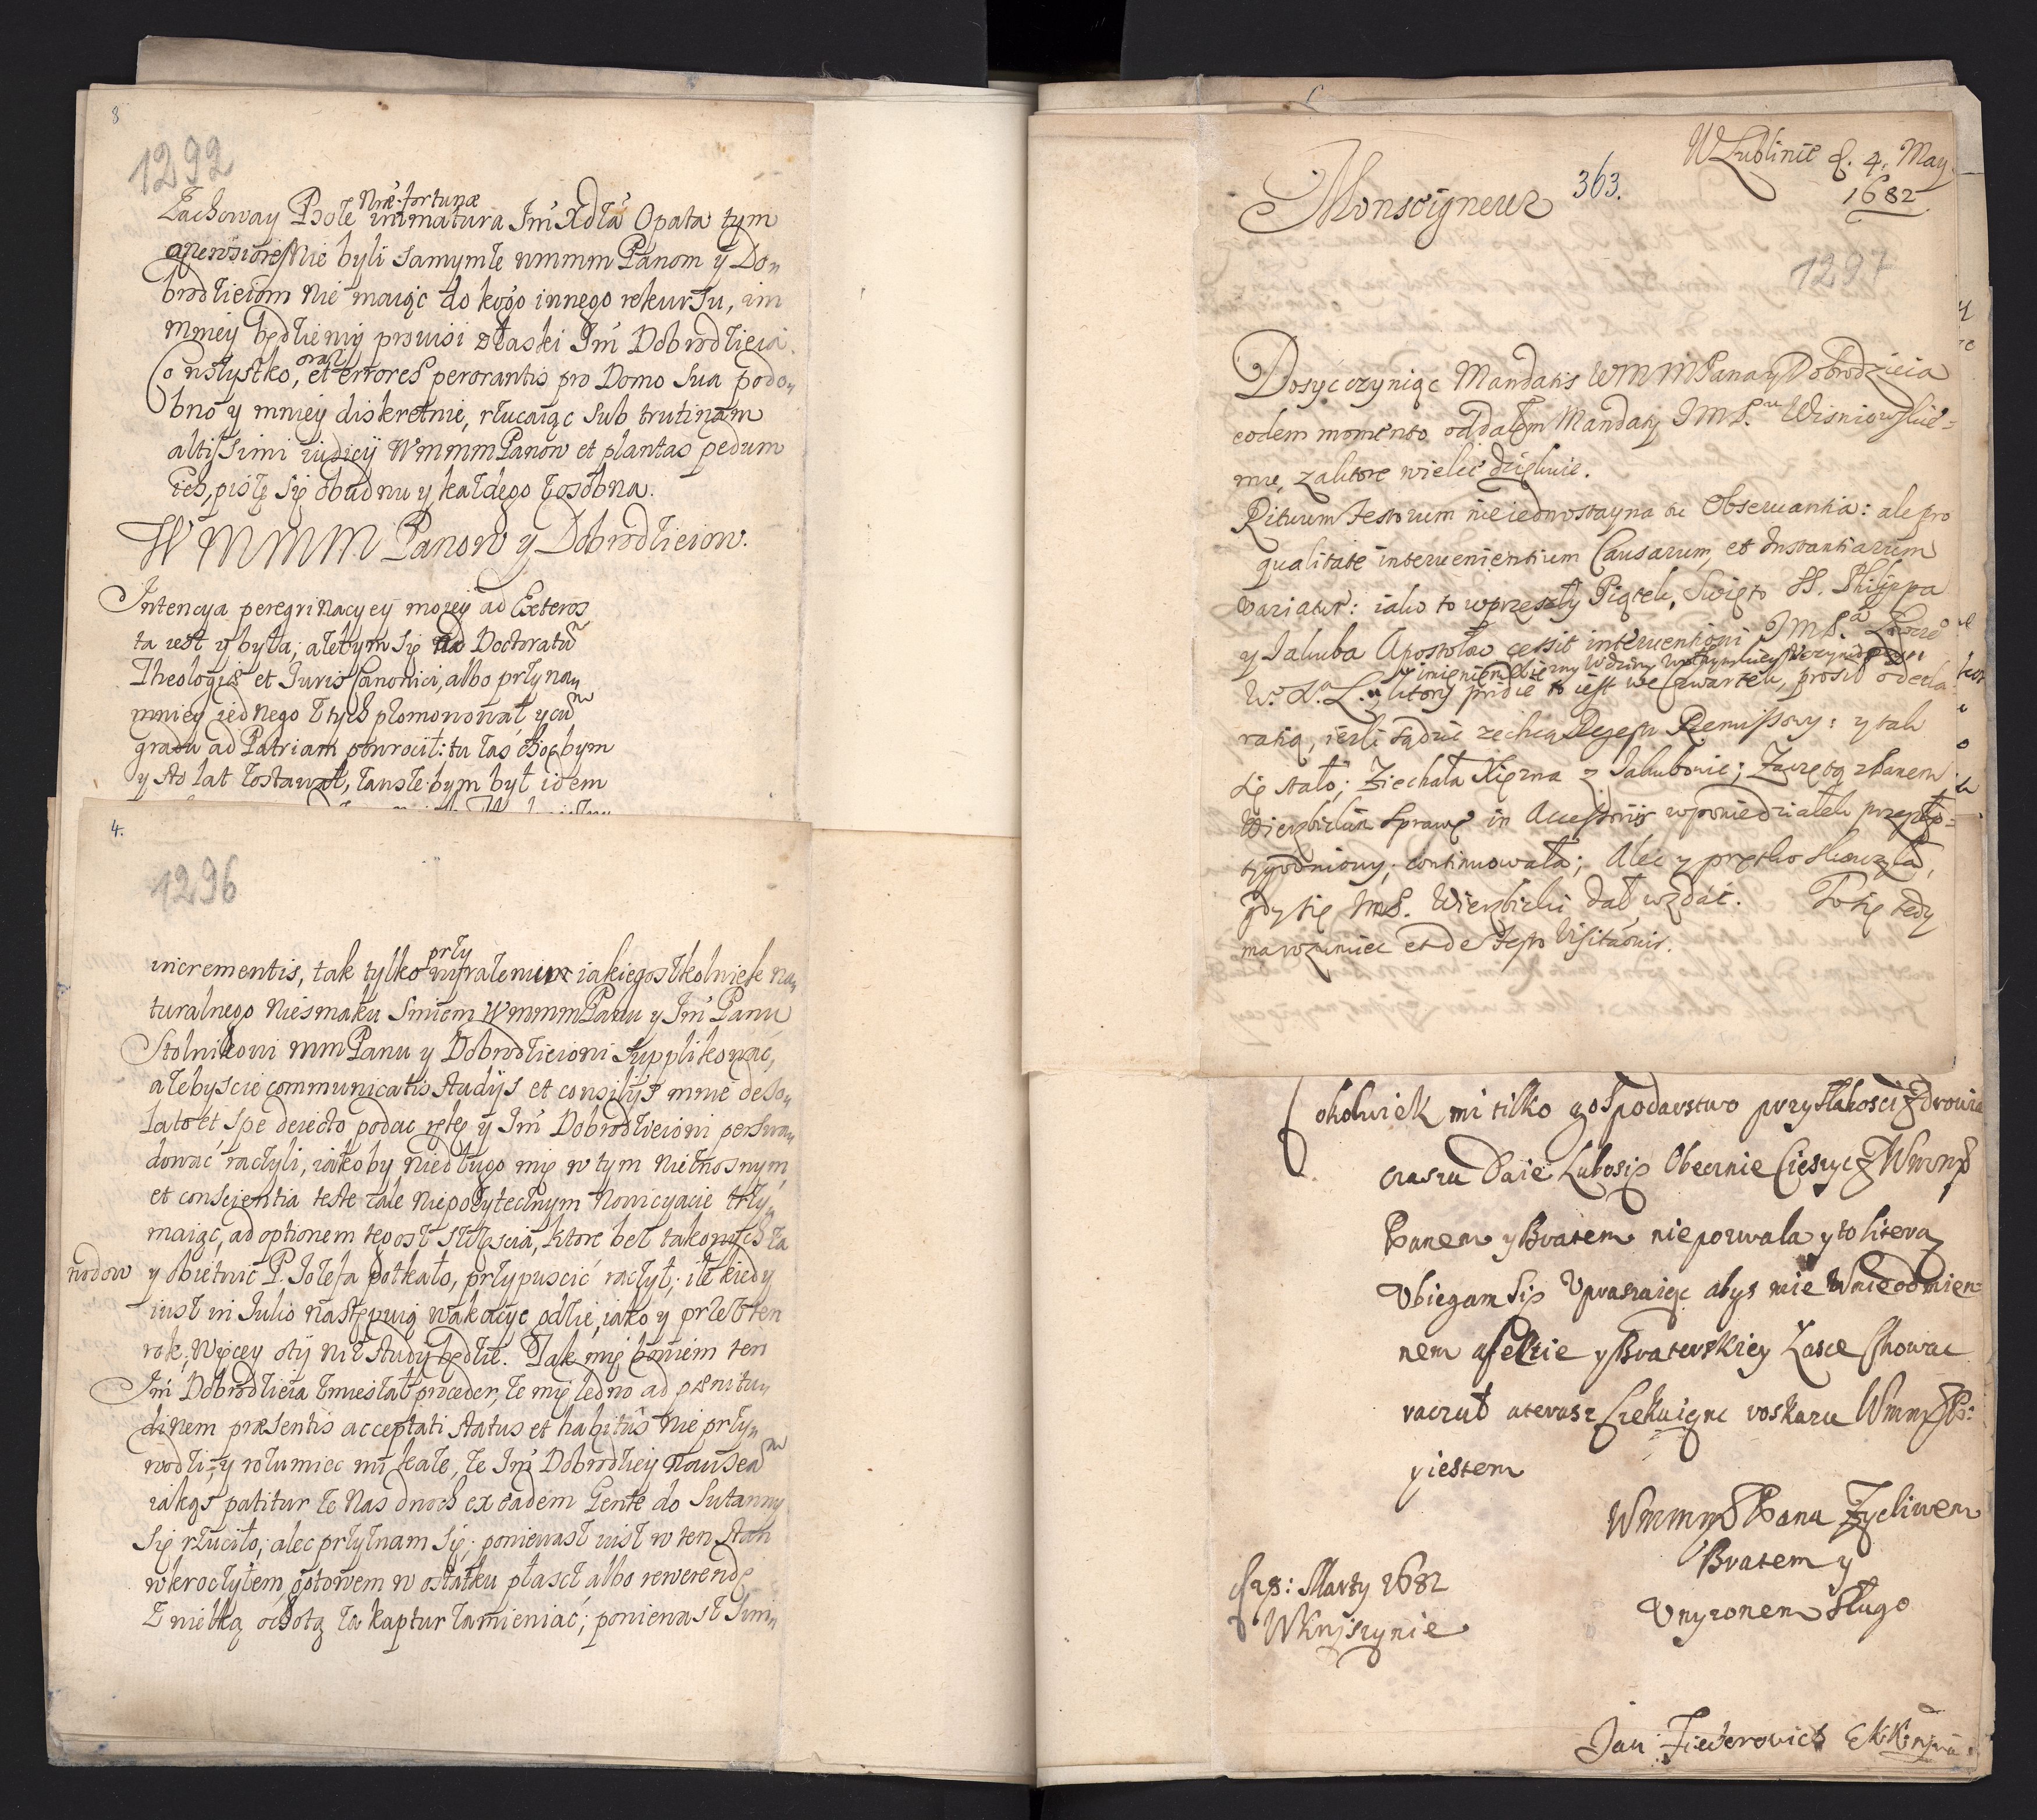 8
1292
Nræ fortunæ
Zachoway Boże immatura Im Xdza Opata tym
apensiores Nie byli samymże wmmm Panom y Do„
brodzieiom nie maiąc do kogo innego rekursu, im
mniey będziemy prowisi z łaski Im Dobrodzieia.
oraz
Co wszystko, et errores perorantis pro Domo sua podo„
bno y mniey diskretnie, rzucaiąc sub trutinam
altissimi iudicij Wmmm Panow et plantas pedum
ich, piszę się obudwu y każdego zosobna.
W M M M Panow y Dobrodzieiow.
Intencya peregrinacyey moiey ad Exteros
ta iest y była; ażebym się na Doctoratu
Theologiæ et Juris Canonici, albo przynay
mniey iednego z tych promonował, y cu
gradu ad Patriam powrocił: tu zas, chocbym
y sto lat zostawał, zawsze bym był idem
4.
1296
przy
incrementis, tak tylko wyrażeniem iakiegoszkolwiek na„
turalnego niesmaku smiem Wmmm Panu y Im Panu
Stolnikowi mm Panu y Dobrodzieiowi supplikowac,
ażebyscie communicatis studijs et consilijs mnie deso„
lato et spe deiecto podac rękę y Im Dobrodzieiowi perswa„
dować raczyli, iakoby niedługo mię w tym nieznosnym,
et conscientia teste zale niepożytecznym Nowicyacie trzy„
maiąc, ad optionem tegosz szczęscia, ktore bez takowych za
wodow y obietnic P. Jozefa potkało, przypuscić raczył; ile kiedy
iusz in Julio następuią wakacye odzie, iako y przesz ten
rok, więcey oty niż study będzie. Tak mię bowiem ten
Im Dobrodzieia zmieszał proceder, że mię ledwo ad pœnitu„
dinem præsentis acceptati status et habitus nie przy„
wodzi; y rozumiec mi każe, że Im Dobrodziey nausea
iakąs patitur że nas dwoch ex eadem Gente do Sutanny
się rzuciło; alec przyznam się; poniewasz iusz w ten stan
wkroczyłem, gotowem w ostatku płaszcz albo rewerendę
z wielką ochotą za kaptur zamieniać; poniewasz smi„
W Lublinie d. 4. May
1682
363.
Monseigneur
1297
Dosyc czyniąc Mandatis WMM Pana y Dobrodzieia
eodem momento oddałem Mandaty JMP. Wisniowskie=
mu, za ktore wielce dziękuie.
Rituum Festorum nieiednostayna tu Observantia: ale pro
qualitate intervenientium Causarum, et Instantiarum
variatur: iako to w przeszły Piątek, Swięto SS. Philippa
y Jakuba Apostołow cessit interventioni JMP.
W. X. L. ktory pridie to iest we Czwartek, prosił o decla=
ratią, iezli sądzic zechcą Regestr Remissowy: y tak
się stało; Ziechała Xiężna z Jakubowic; Zaczętą z Panem
Wierzbickim sprawę in Accessoriis w poniedziałek przeszło=
tygodniowy, continuowała; Alec y prętko skonczyła,
gdy się JmP. Wierzbicki dał wzdać. To się tedy
ma rozumiec et de Festo Visitaonis.
Cokolwiek mi tilko gospodarstwo przy słabosci zdrowia
czaszu daie Lubosię Obecnie Cieszyc z Wmmp
Panem y Bratem niepozwala y to litera
Ubiegam się Upraszaiąc abys mie w nieodmien=
nem afekcie y Braterskiey Łasce Chowac
raczuł a teras Czekaiąnc roskazu Wmm P:
y iestem
Wmmm Pana Zycliwem
Bratem y
Unyzonem sługo
d 28: Marty 1682
W Knyszynie
Jan Fiederowich